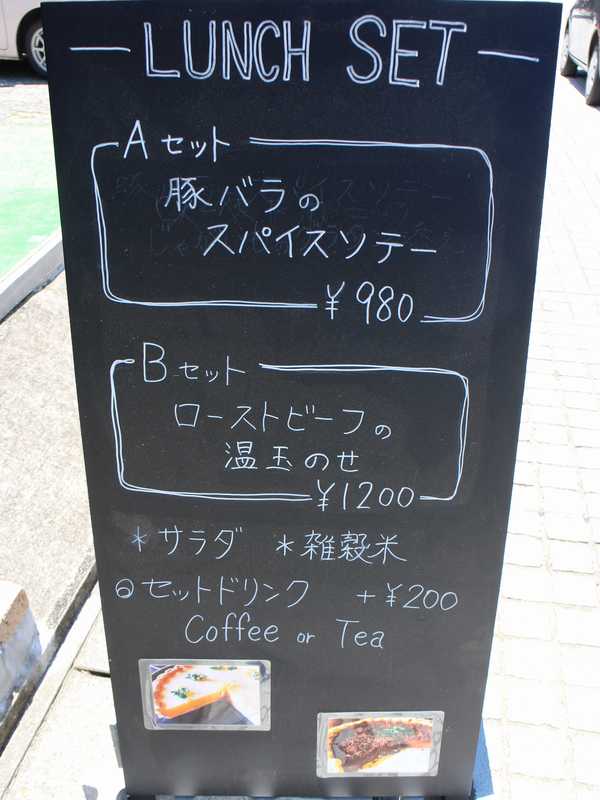 LUNCH SET
Aセット
豚バラの
スパイスソテー
¥980
Bセット
ローストビーフの
温玉のせ
¥1200
*サラダ *雑穀米
◎セットドリンク +¥200
Coffee or Tea